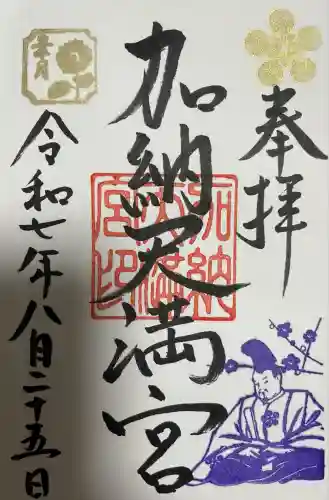 奉拝
加納天満宮
加納天満宮印
令和七年八月二十五日
葉月